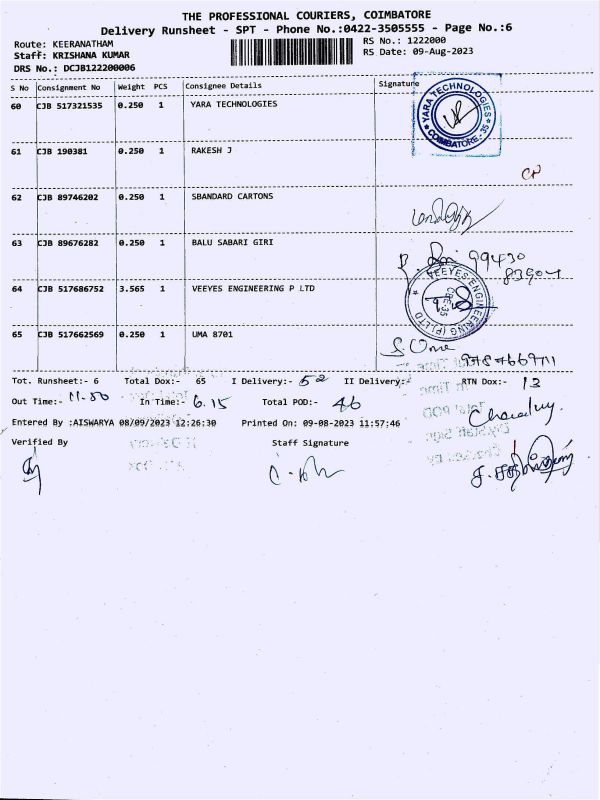 THE PROFESSIONAL COURIERS, COIMBATORE
Delivery Runsheet - SPT - Phone No.:0422-3505555 - Page No.:6
Route: KEERANATHAM RS No.: 1222000
Staff: KRISHANA KUMAR RS Date: 09-Aug-2023
DRS No.: DCJB122200006
S No Consignment No Weight PCS Consignee Details Signature
60 CJB 517321535 0.250 1 YARA TECHNOLOGIES
YARA TECHNOLOGIES COIMBATORE - 35
61 CJB 190381 0.250 1 RAKESH J
62 CJB 89746202 0.250 1 SBANDARD CARTONS
63 CJB 89676282 0.250 1 BALU SABARI GIRI
99430
64 CJB 517686752 3.565 1 VEEYES ENGINEERING P LTD
VEEYES ENGINEERING (P) LTD CBE-35
65 CJB 517662569 0.250 1 UMA 8701
S. Uma
Tot. Runsheet:- 6 Total Dox:- 65 I Delivery:- 52 II Delivery:- RTN Dox:- 13
Out Time:- 11.50 In Time:- 6.15 Total POD:- 46
Entered By :AISWARYA 08/09/2023 12:26:30 Printed On: 09-08-2023 11:57:46
Verified By Staff Signature